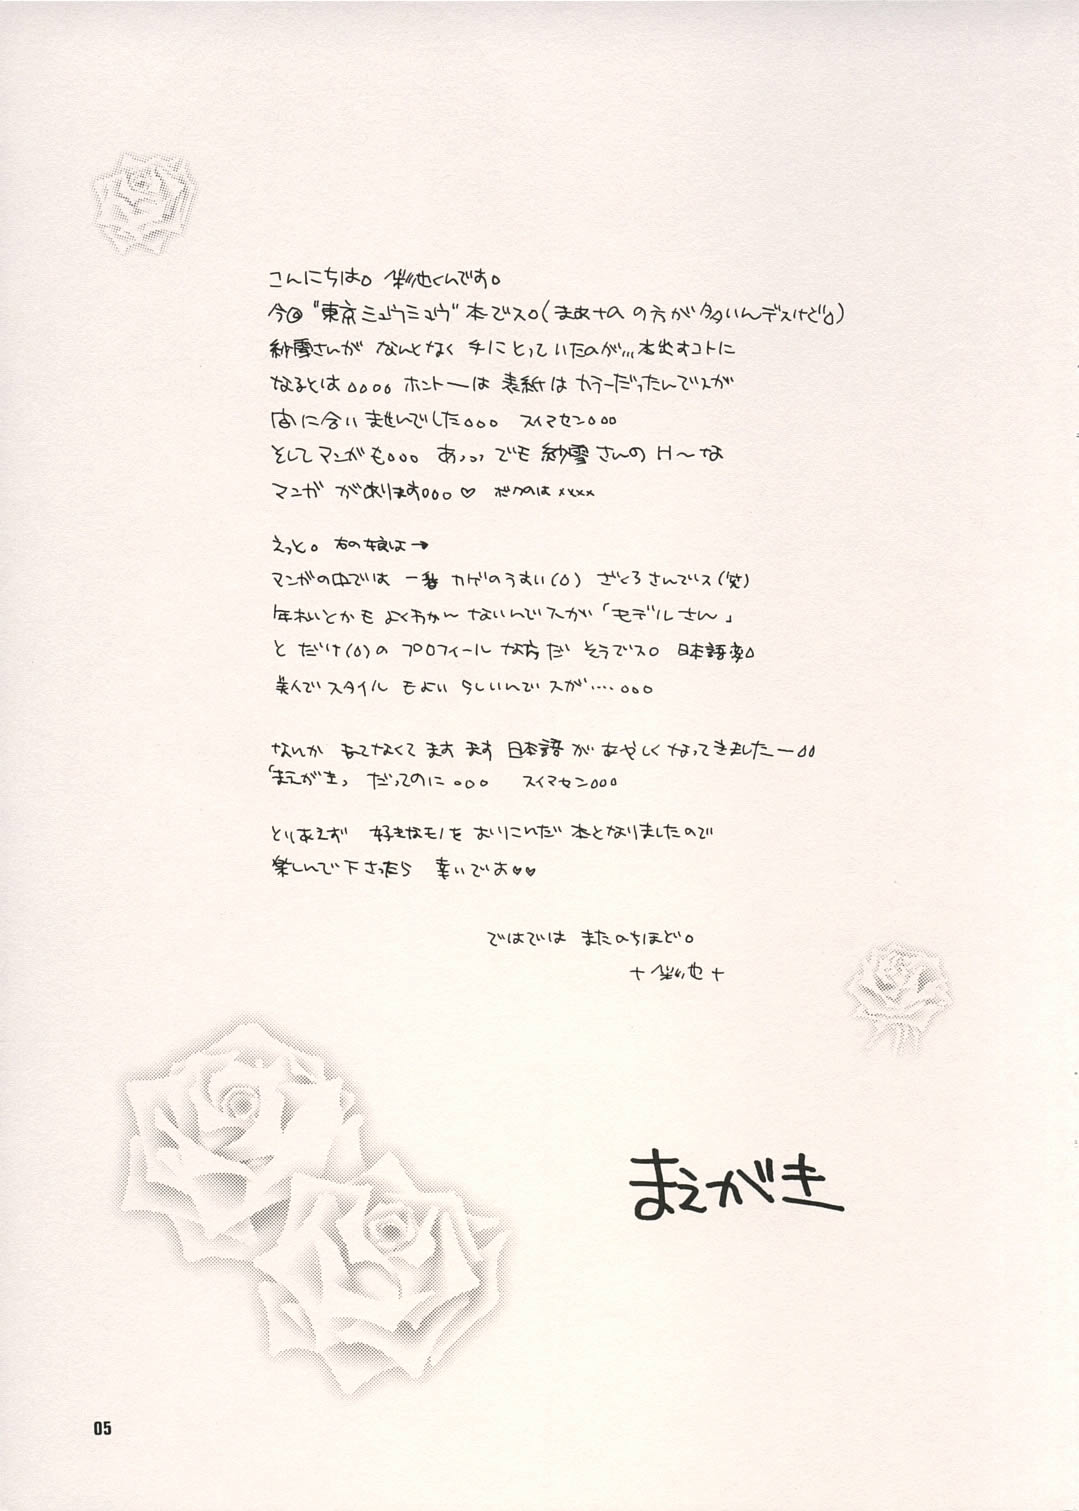 こんにちは。 彩也くんです。
今回"東京ミュウミュウ"本でス。(まぁ+αの方が多いんデスけど。)
紗雪さんが なんとなく 手にとっていたのが,,,本出すコトに
なるとは。。。。 ホントーは 表紙は カラーだったんでスが
間に合い ませんでした。。。 スイマセン。。。
そして マンガも。。。 あっっ でも 紗雪 さんの H〜な
マンガ があります。。。♡ ボクのは xxxx
えっと。 右の娘は→
マンガの中では 一番 カゲのうすい(。) ざくろ さんでス(笑)
年れいとかも よくわか〜 ないんでスが「モデルさん」
と だけ(。)の プロフィール な方だ そうでス。 日本語変。
美人で スタイル もよい らしいんで スが‥‥。。。
なんか ねてなくて ます ます 日本語 が あやしく なってきましたー。。
「まえがき」 だってのに 。。。 スイマセン。。。
とりあえず 好きなモノを おりこんだ 本となりましたので
楽しんで下さったら 幸いです♡♡
ではでは またのちほど。
+彩也+
まえがき
05